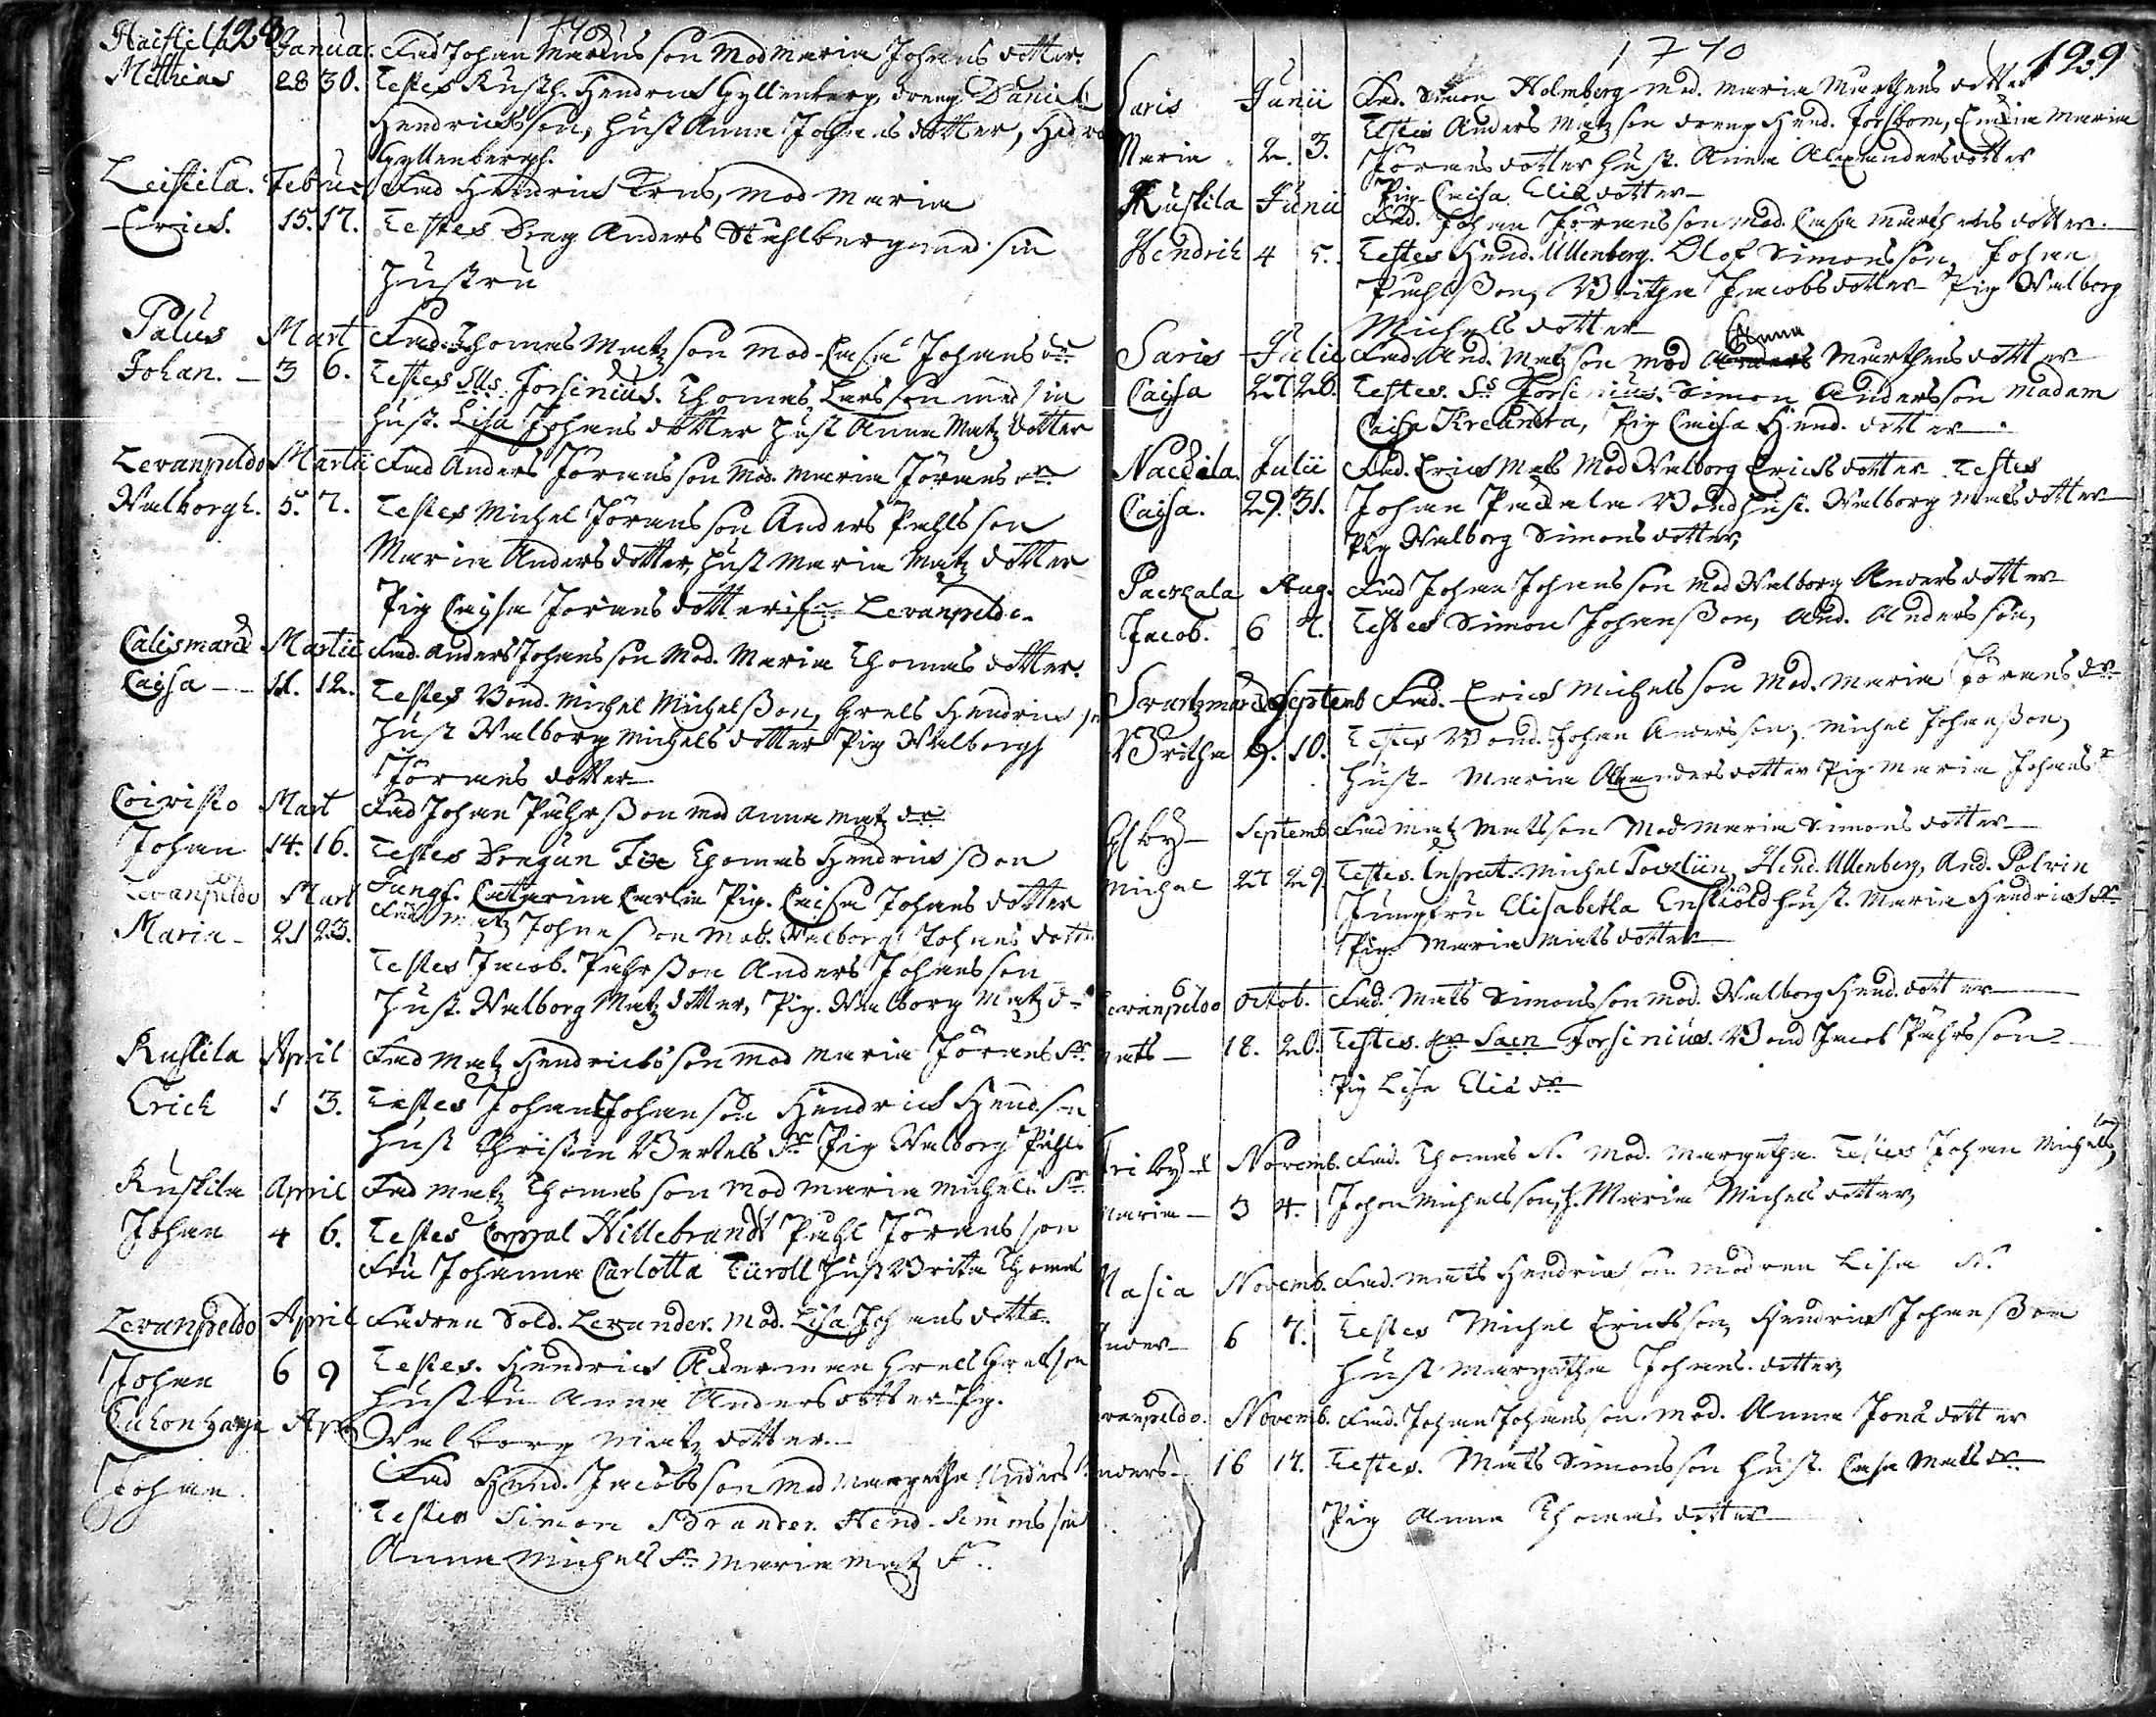 128 1740
Haistila Januar. Fad Johan Marcus son Mod Maria Johans dotter.
Mathias 28 30. Testes Rusth. Hendric Gyllenberg, dreng Daniel
Hendricksson, Hust Anna Johans dotter,
Gyllenbergh.
Leistila. Febru Fad Hendric mod Maria
Erick. 15. 17. Testes Dreng Anders Stahlberg med sin
Hustru
Palus Mart Fad. Thomas Matz son Mod. Caisa Johans dr
Johan. 3 6. Testes Forsinius. Thomas Larsson med sin
Hust. Lisa Johans dotter Hust Anna Matz dotter
Levanpeldo Martii Fad Anders Jörans son Mod. Maria Jörans dr
Walborgh. 5. 7. Testes Michel Jörans son Anders Påhlsson
Maria Anders dotter, Hust Maria Matz dotter
Pig Caysa Jörans dotter Levanpeldo.
Calismarck Martii Fad. Anders Johans son Mod. Maria Thomas dotter.
Caysa 11. 12. Testes Bond. Michel Michelsson, Grels Hendric
Hust Walborg Michels dotter Pig Walborgh
Jörans dotter
Coivisto Mart Fad Johan Påhrsson Mod Anna Matz dr
Johan 14. 16. Testes Dragun Fix Thomas Hendricsson
Jungf. Catarina Carlin Pig. Caisa Johans dotter
Levanpeldo Mart Fad Matz Johansson Mod. Walborg Johans dotter
Maria 21 23.
Testes Jacob. Påhrsson Anders Johansson
Hust. Walborg Matz dotter, Pig. Walborg Matz dr
Ruskila April Fad Matz Hendricksson mod Maria Jörans dr
Erich 1 3. Testes Johan Johansson Hendric Hendson
Hust Christin Bertels dr Pig Walborg Påhls
Ruskila April Fad Matz Thomas son mod Maria Michels dr
Johan 4 6. Testes Corpral Hillebrandt Påhl Jörans son
Fru Johanna Carlotta Türoll Hust Brita Thomas
Levanpeldo April Fadren Sold. Levander. Mod. Lisa Johans dotter
Johan 6 9 Testes. Hendric Åkerman Grels Grelsson
Hustru Anna Anders dotter Pig.
Apr Walborg Matz dotter
Johan Fad Hend. Jacobsson Mod Margetha Anders
Testes Simon Hend. Simonsson
Anna Michels dr Maria Matz d.
1740 129
Saris Junii Fad. Simon Holmberg mod. Maria Marthens dotter
Testes Anders Matzson dreng Hend. Forsbom, Maria
Maria 2. 3. Jörans dotter Hust. Anna Alexandersdotter
Pig Caisa Eliæ dotter
Ruskila Junii Fad. Johan Jöransson Mod. Caisa Marthens dotter
Hendrik 4 5. Testes Hend. Ullenberg. Olof Simonsson, Johan
Påhlsson, Britha Jacobsdotter Pig Walborg
Michels dotter
Saris Julii Fad. And. Matzson Mod Anna Marthens dotter
Caysa 27 28. Testes. Forsinius. Simon Andersson Madam
Caisa Kreandra, Pig Caisa Hend. dotter
Nackila. Julii Fad. Eric Mats Mod Walborg Ericks dotter Testes
Caysa. 29. 31. Johan Bond Hust. Walborg Mats dotter
Pig Walborg Simons dotter
Aug. Fad Johan Johans son Mod Walborg Anders dotter
Jacob. 6 7. Testes Simon Johansson, And. Andersson,
Svartzmarck Septemb Fad. Eric Michelsson Mod. Maria Jörans dr
Britha 9. 10. Testes Bond. Johan Andersson, Michel Johansson,
Hust Maria Alexandersdotter Pig Maria Johans
by Septemb. Fad Matz Mattsson Mod Maria Simons dotter
Michel 27 29 Testes. Inspect. Michel Hend. Ullenberg, And. Polvin
Jungfru Elisabetha Enskiöld Hust. Maria Hendrics dr
Pig. Maria Mats dotter
Levanpeldo Octob. Fad. Mats Simonsson Mod. Walborg Hend. dotter
Mats 18. 20. Testes. Forsinius. Bond Jacob Påhrsson
Pig Lisa Eliæ dr
Friby Novemb. Fad. Thomas N. Mod. Margetha Testes Johan Michels,
Maria 3 4. Johan Michelsson, H. Maria Michels dotter,
Masia Novemb. Fad. Mats Hendricsson modren Lisa N.
6 7. Testes Michel Ericksson, Hendric Johansson
Hust Margetha Johans. dotter
Levanpeldo. Novemb. Fad. Johan Johansson Mod. Anna Jonæ dotter
Anders 16 17. Testes. Mats Simonsson Hust. Caisa Mats dr
Pig Anna Thomas dotter